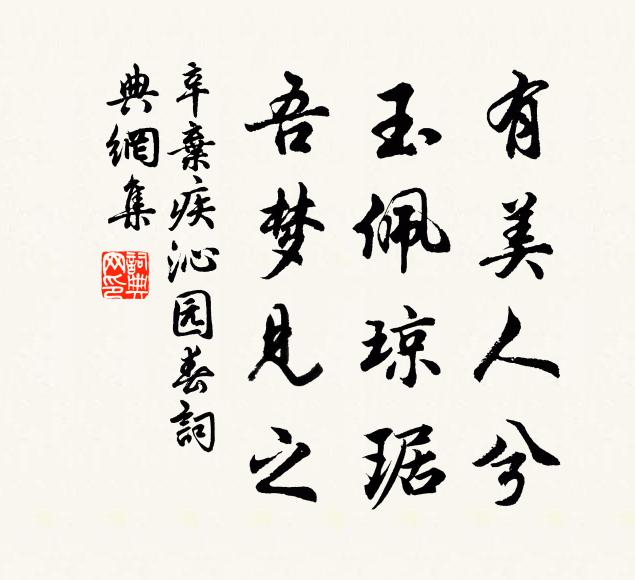 有美人兮
玉佩琼琚
吾梦见之
辛棄疾沁园春詞
典網集
詞典網印